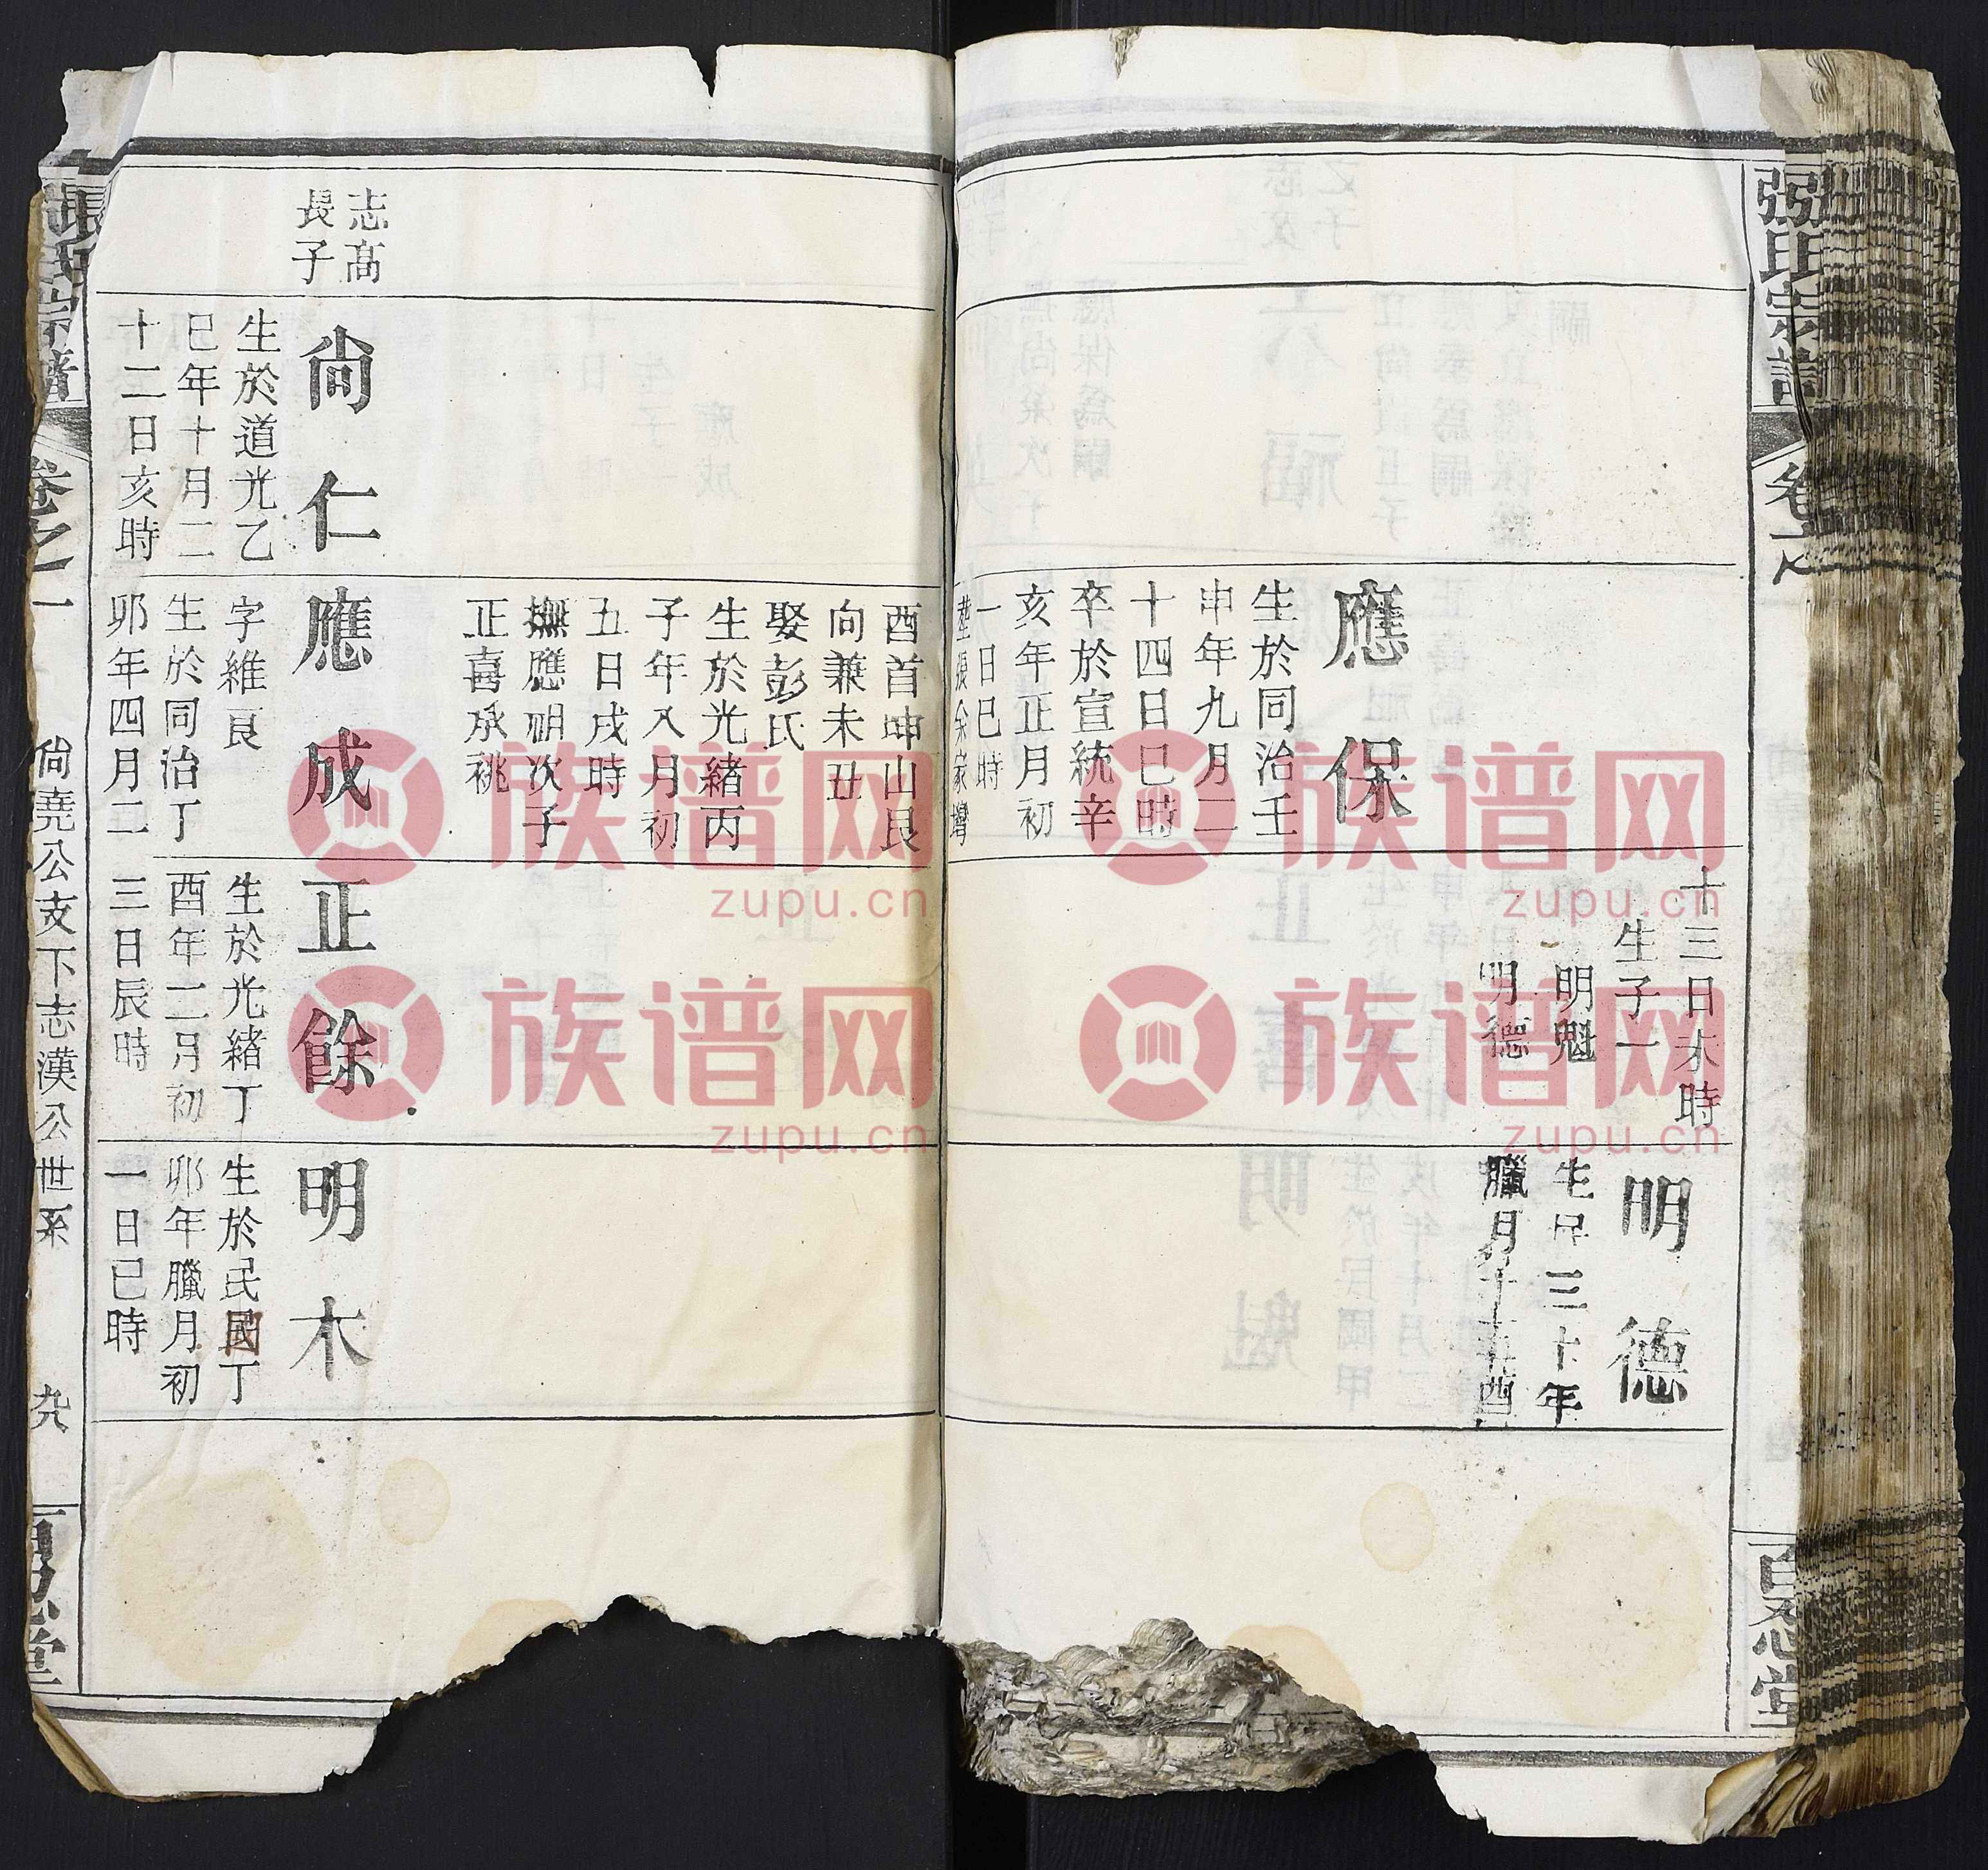 張氏宗譜
卷之一
百忍堂
應保
生於同治壬
申年九月二
十四日巳時
卒於宣統辛
亥年正月初
一日巳時
葬張余家灣
酉首坤山艮
向兼未丑
娶彭氏
生於光緒丙
子年八月初
五日戌時
撫應明次子
正喜承祧
十三日未時
生子一
明魁
明德
明德
生民三十年
臘月十五酉
志高
長子
尚仁
生於道光乙
巳年十月二
十二日亥時
應成
字維良
生於同治丁
卯年四月二
正餘
生於光緒丁
酉年二月初
三日辰時
明木
生於民國丁
卯年臘月初
一日巳時
張氏宗譜
卷之一
尚堯公支下志漢公世系
九八
百忍堂
族谱网
zupu.cn
族谱网
zupu.cn
族谱网
zupu.cn
族谱网
zupu.cn